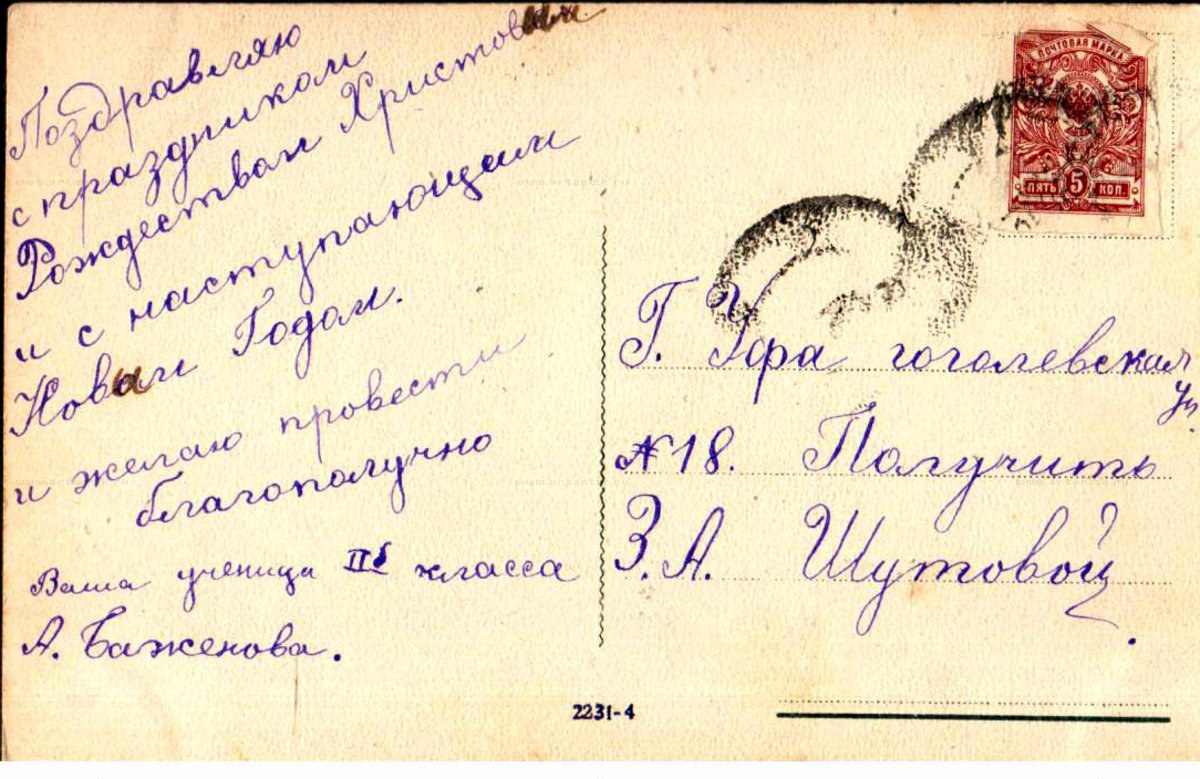 Поздравляю
с праздником
Рождествам Христовым
и с наступающим
Новым Годом.
и желаю провести
благополучно
Ваша ученица IIб класса
А. Баженова.
ПОЧТОВАЯ МАРКА
ПЯТЬ 5 КОП.
Г. Уфа гоголевская
ул.
№18. Получить
З.А. Шутовой
2231-4